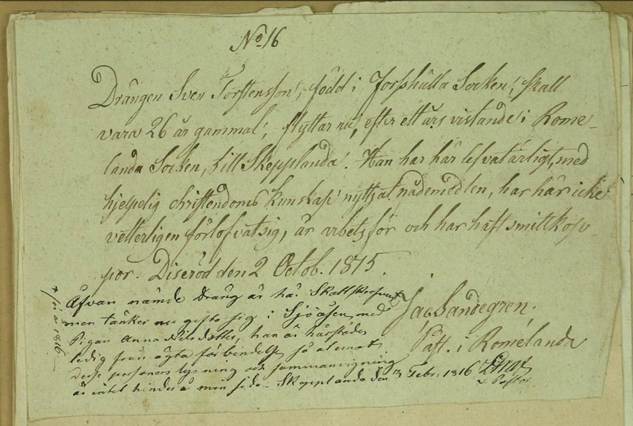 No 16
Drängen Sven Torstensson, född i Forsshälla Socken, skall
vara 26 år gammal, flyttar nu, efter ett års vistande i Rome-
landa Socken, till Skepplanda. Han har här lefvat ärligt, med
hjelpelig christendoms kunskap nyttjat nådemedlen, har här icke
vetterligen förlofvat sig, är arbetsför och har haft smittkop-
por. Diseröd den 2 Octob. 1815.
Jac. Sandegren.
Past. i Romelanda
Åfvan nämde dräng är här Skattskrefven
men tänker nu gifta sig i Sjöåsen, med
Pigan Anna
ledig från ägta förbindelse så at emot
desse personers lysning och sammanvigning
är intet hinder å min sida. Skepplanda den Febr. 1816